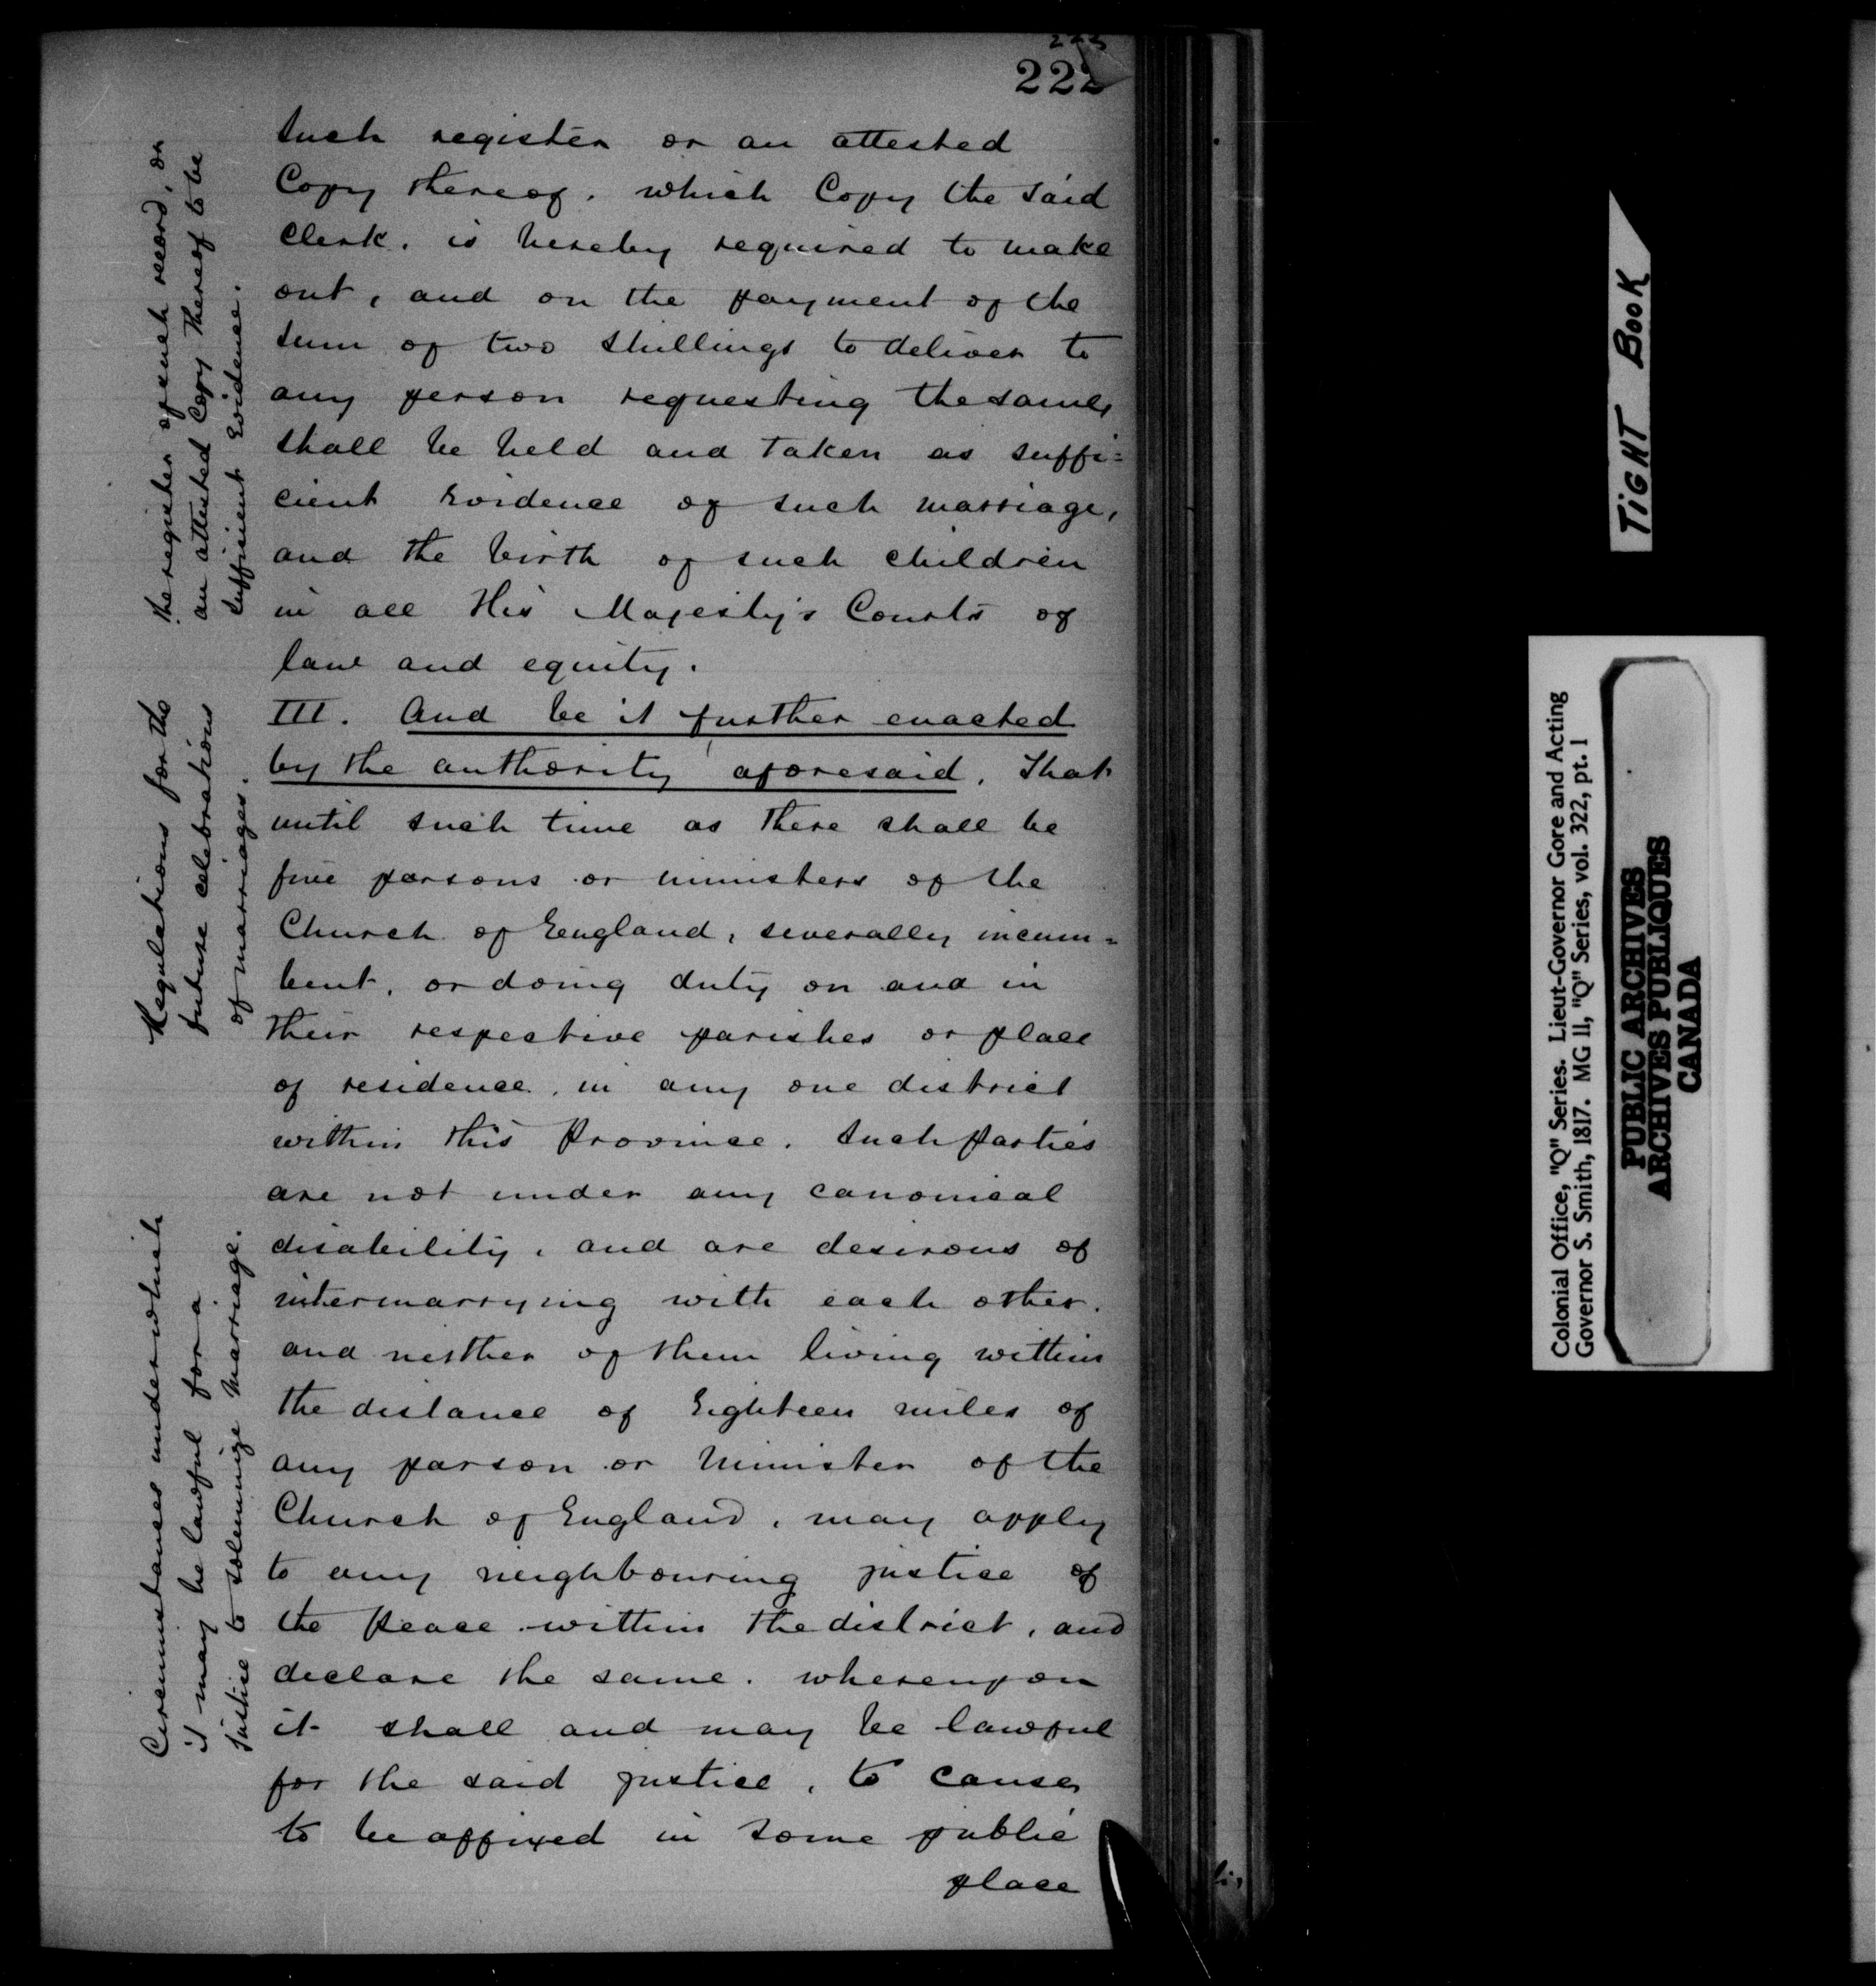 223
222
such register or an attested
Copy thereof, which Copy the said
Clerk, is hereby required to make
out, and on the payment of the
sum of two shillings to deliver to
any person requesting the same,
shall be held and taken as suffi=
cient evidence of such marriage,
and the birth of such children
in all His Majesty's Courts of
law and equity.
the register of such record, or
an attested Copy thereof to be
sufficient evidence.
III. And be it further enacted
by the authority aforesaid, That
until such time as there shall be
five parsons or ministers of the
Church of England, severally incum=
bent, or doing duty on and in
their respective parishes or place
of residence, in any one district
within this Province. Such parties
are not under any canonical
disability, and are desirous of
intermarrying with each other.
and neither of them living within
the distance of Eighteen miles of
any parson or Minister of the
Church of England, may apply
to any neighbouring justice of
the Peace within the district, and
declare the same. whereupon
it shall and may be lawful
for the said justice, to cause,
to be affixed in some public
place
Regulations for the
future celebrations
of marriages.
Circumstances under which
it may be lawful for a
Justice to solemnize Marriage.
TIGHT BOOK
Colonial Office, "Q" Series. Lieut-Governor Gore and Acting
Governor S. Smith, 1817. MG 11, "Q" Series, vol. 322, pt. 1
PUBLIC ARCHIVES
ARCHIVES PUBLIQUES
CANADA